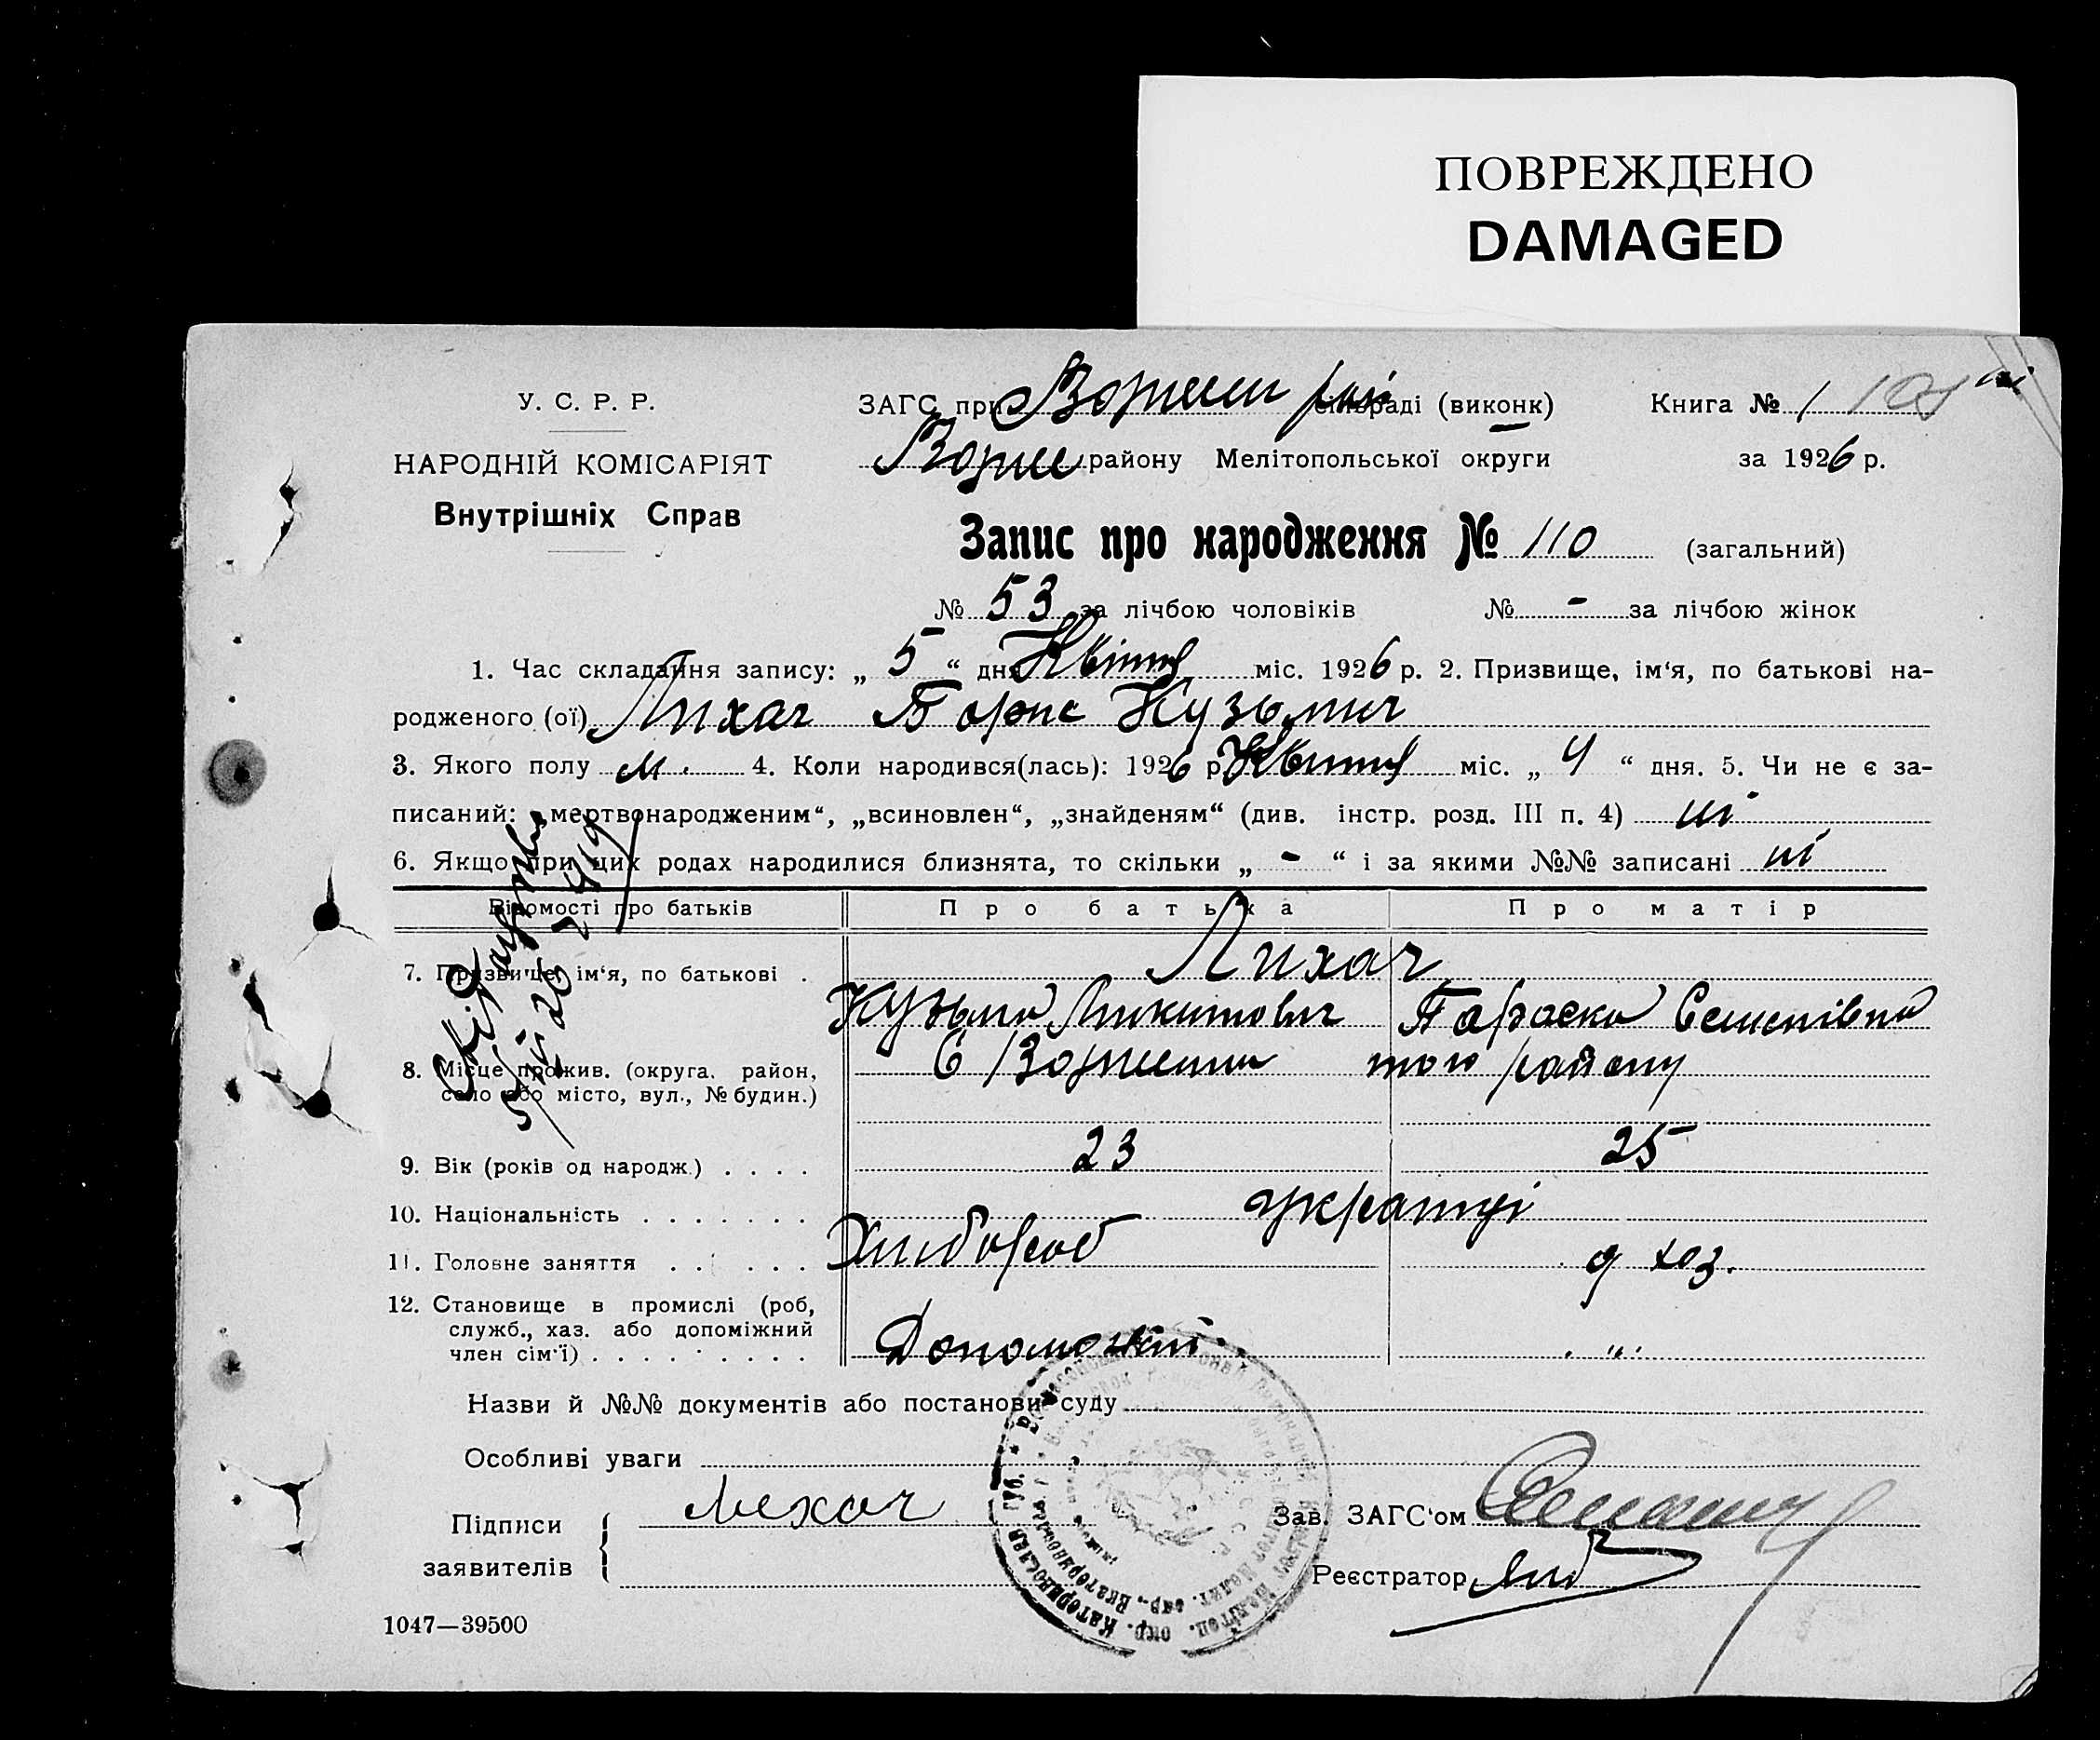 ПОВРЕЖДЕНО
DAMAGED
У. С. Р. Р.
НАРОДНІЙ КОМІСАРІЯТ
Внутрішніх Справ
ЗАГС при сільраді (виконк) Книга № 1
району Мелітопольської округи за 1926 р.
Запис про народження № 110 (загальний)
№ 53 за лічбою чоловіків № - за лічбою жінок
1. Час складання запису: „ 5 “ дня Квітня міс. 1926 р. 2. Призвище, ім‘я, по батькові на-
родженого (ої) Лихач Борис Кузьмич
3. Якого полу м. 4. Коли народився(лась): 1926 р. Квітня міс. „ 4 “ дня. 5. Чи не є за-
писаний: „мертвонародженим“, „всиновлен“, „знайденям“ (див. інстр. розд. III п. 4) ні
6. Якщо при цих родах народилися близнята, то скільки „ - “ і за якими №№ записані ні
Відомості про батьків Про батька Про матір
7. Призвище, ім‘я, по батькові . Лихач
Кузьма Микитович Параска Семенівна
8. Місце прожив. (округа. район, с того району
село або місто, вул., № будин.)
9. Вік (років од народж.) . . . . 23 25
10. Національність . . . . . . . українці
11. Головне заняття . . . . . . Хлібороб д хоз.
12. Становище в промислі (роб,
служб., хаз. або допоміжний
член сім‘ї) . . . . . . . . . Допоможн. "
Назви й №№ документів або постанови суду
Особливі уваги
Підписи
заявителів
Лихач
Зав. ЗАГС‘ом
Реєстратор
1047—39500